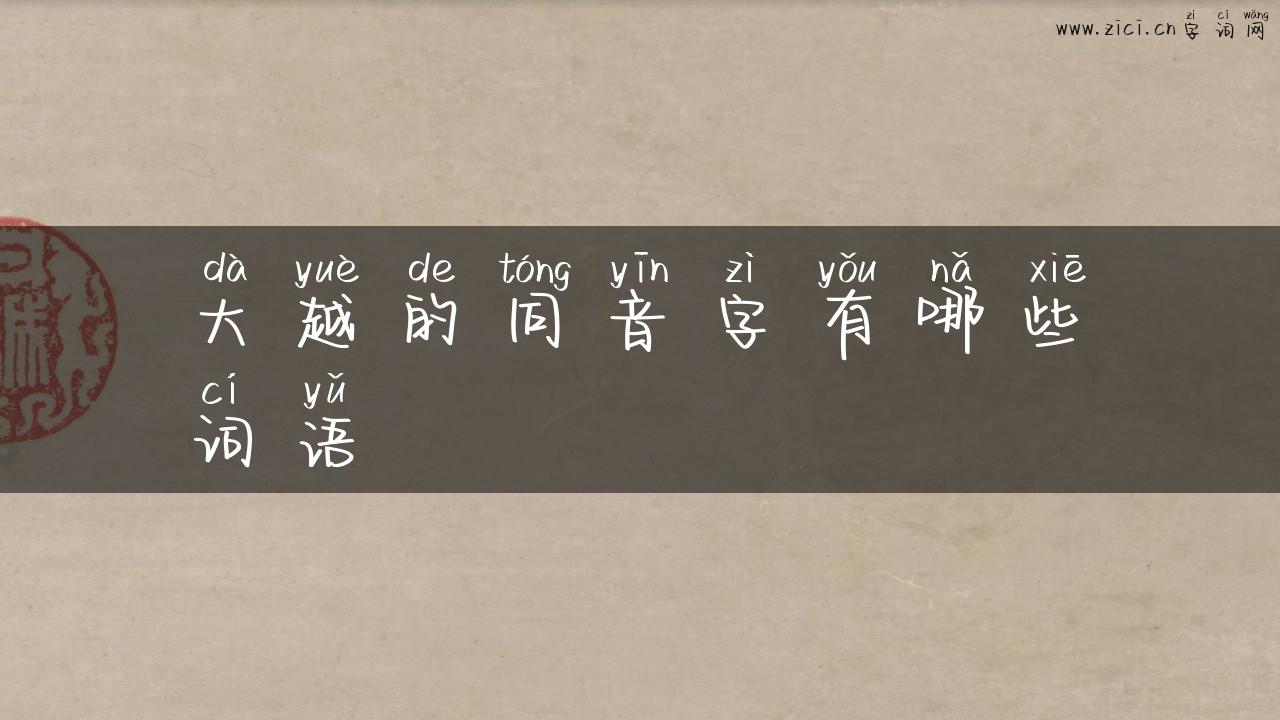 zì cí wǎng
www.zici.cn 字词网
dà yuè de tóng yīn zì yǒu nǎ xiē
大越的同音字有哪些
cí yǔ
词语